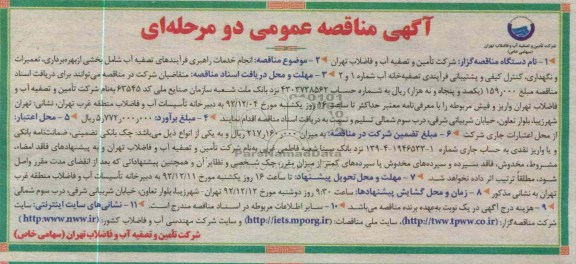 آگهی مناقصه عمومی دو مرحله‌ای
شرکت تأمین و تصفیه آب و فاضلاب تهران
(سهامی خاص)
۱- نام دستگاه مناقصه‌گزار: شرکت تأمین و تصفیه آب و فاضلاب تهران ۲- موضوع مناقصه: انجام خدمات راهبری فرآیندهای تصفیه آب شامل بخشی از بهره‌برداری، تعمیرات
و نگهداری، کنترل کیفی و پشتیبانی فرآیندی تصفیه‌خانه آب شماره ۱ و ۲ ۳- مهلت و محل دریافت اسناد مناقصه: متقاضیان شرکت در مناقصه می‌توانند برای دریافت اسناد
مناقصه مبلغ ۱۵۹,۰۰۰ (یکصد و پنجاه و نه هزار) ریال به شماره حساب ۴۳۰۳۷۳۸۵۶۲ نزد بانک ملت شعبه سازمان صنایع ملی کد ۶۳۵۴۵ به نام شرکت تأمین و تصفیه آب و
فاضلاب تهران واریز و فیش مربوطه را با معرفی‌نامه معتبر حداکثر تا ساعت روز یکشنبه مورخ ۹۲/۱۲/۰۴ به دبیرخانه تأسیسات آب و فاضلاب منطقه غرب تهران، نشانی: تهران
-شهرزیبا، بلوار تعاون، خیابان شربیانی شرقی، درب سوم شمالی تسلیم و نسبت به دریافت اسناد مناقصه اقدام نمایند. ۴- مبلغ برآورد: ۵,۷۷۷,۰۰۰,۰۰۰ ریال ۵- محل اعتبار:
از محل اعتبارات جاری شرکت ۶- مبلغ تضمین شرکت در مناقصه: به میزان ۲۱۷,۰۰۰,۰۰۰ ریال و به یکی از انواع ذیل می‌باشد: چک بانکی تضمینی، ضمانت‌نامه بانکی
و یا واریز نقدی به حساب جاری شماره نزد بانک سینا شعبه فاطمی غربی به‌نام شرکت تأمین و تصفیه آب و فاضلاب تهران و به پیشنهادهای فاقد امضاء،
مشروط، مخدوش، فاقد سپرده و سپرده‌های مخدوش یا سپرده‌های کمتر از میزان مقرر، چک شخصی و نظایر آن و همچنین پیشنهاداتی که بعد از انقضای مدت مقرر واصل
شود، مطلقاً ترتیب اثر داده نخواهد شد. ۷- مهلت و محل تحویل پیشنهاد: تا ساعت ۱۶ روز یکشنبه مورخ ۹۲/۱۲/۱۱ به دبیرخانه تأسیسات آب و فاضلاب منطقه غرب
تهران به نشانی مذکور ۸- زمان و محل گشایش پیشنهادها: ساعت ۹/۳۰ روز دوشنبه مورخ ۹۲/۱۲/۱۲ تهران-شهرزیبا، بلوار تعاون، خیابان شربیانی شرقی، درب سوم شمالی
۹- هزینه درج آگهی در یک نوبت به‌عهده برنده مناقصه می‌باشد ۱۰- سایر اطلاعات مربوطه در اسناد مناقصه مندرج است ۱۱- نشانی‌های سایت اینترنتی: سایت
شرکت مناقصه‌گزار: (http://tww.tpww.co.ir)، سایت ملی مناقصات: (http://iets.mporg.ir) و سایت شرکت مهندسی آب و فاضلاب کشور: (http:www.nww.ir)
شرکت تأمین و تصفیه آب و فاضلاب تهران (سهامی خاص)
ParsNamadData